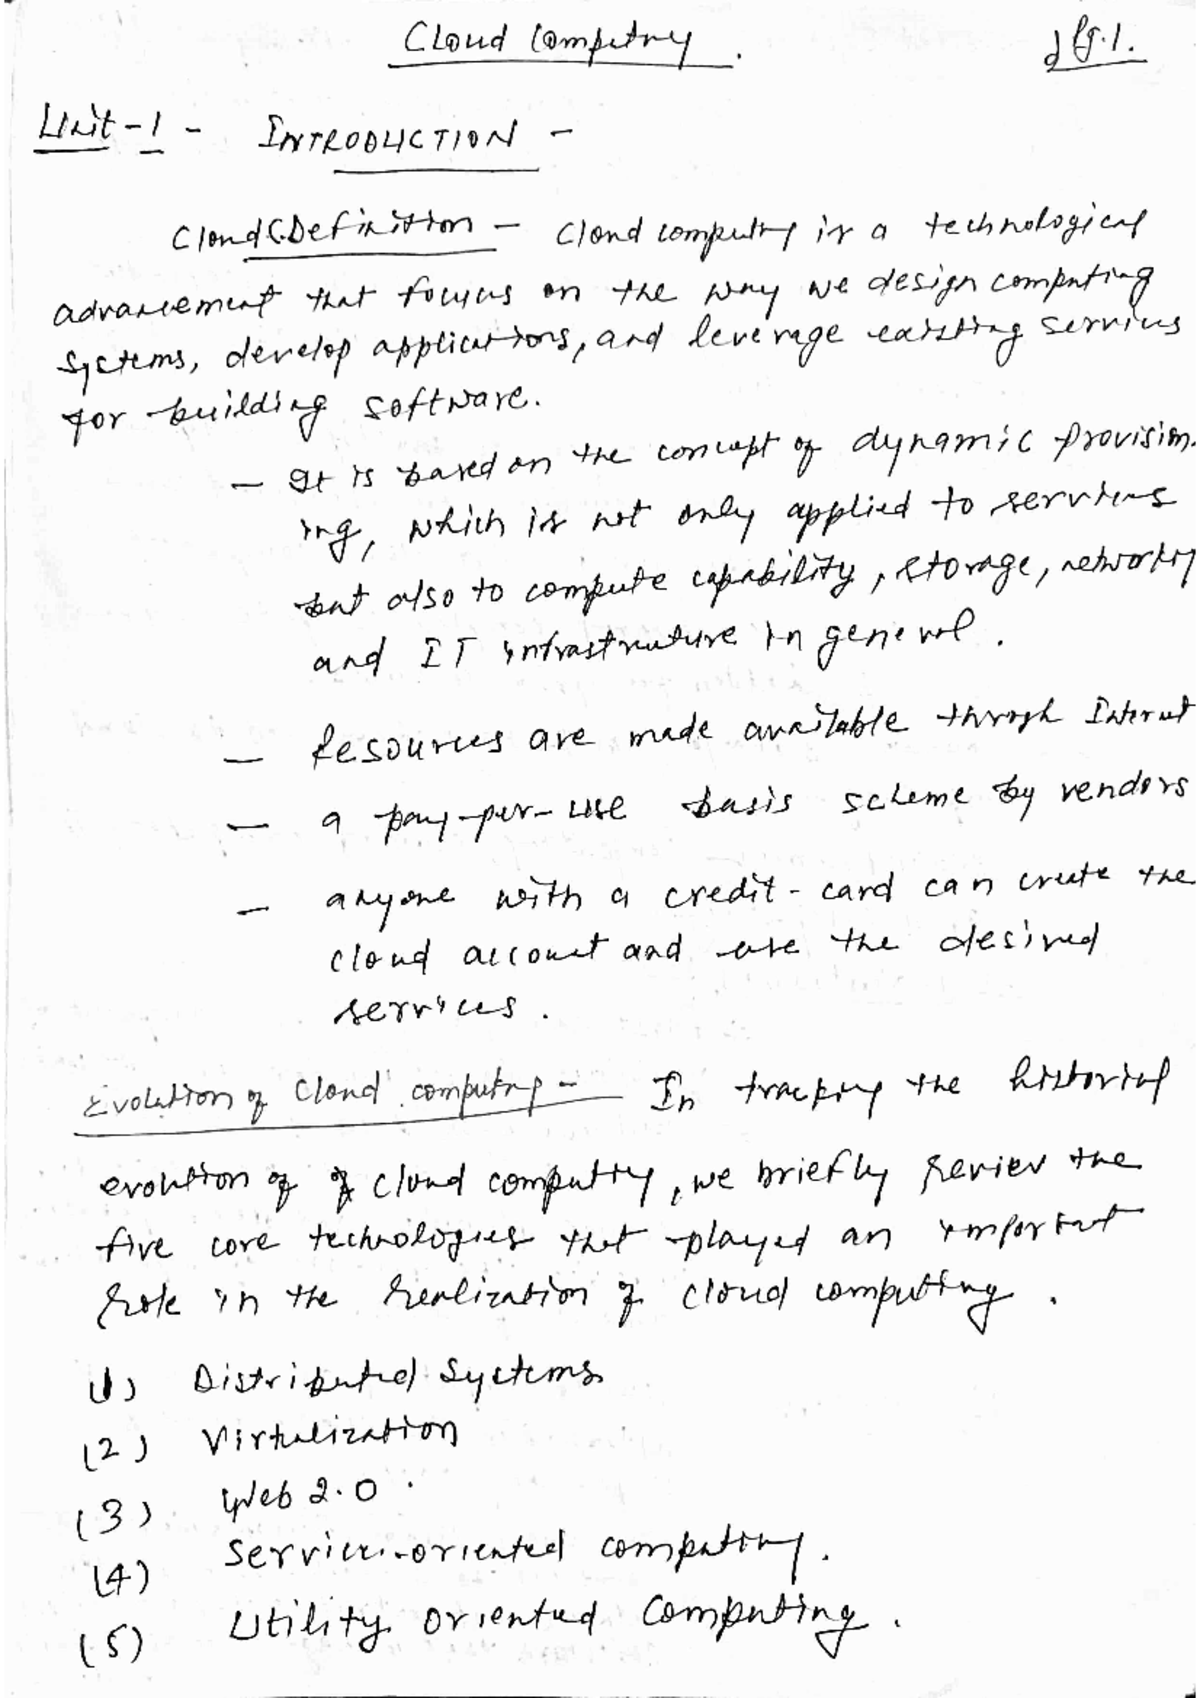 Cloud Computing.
Pg.1.
Unit-1 - INTRODUCTION -
Cloud C. Definition - Cloud computing is a technological
advancement that focuses on the way we design computing
systems, develop applications, and leverage existing services
for building software.
- It is based on the concept of dynamic provision-
ing, which is not only applied to services
but also to compute capability, storage, networking
and IT infrastructure in general.
- Resources are made available through Internet
- a pay-per-use basis scheme by vendors
- anyone with a credit-card can create the
cloud account and use the desired
services.
Evolution of Cloud computing - In tracking the historical
evolution of of cloud computing, we briefly review the
five core technologies that played an important
role in the realization of cloud computing.
(1) Distributed Systems
(2) Virtualization
(3) Web 2.0.
(4) Service-oriented computing.
(5) Utility oriented Computing.